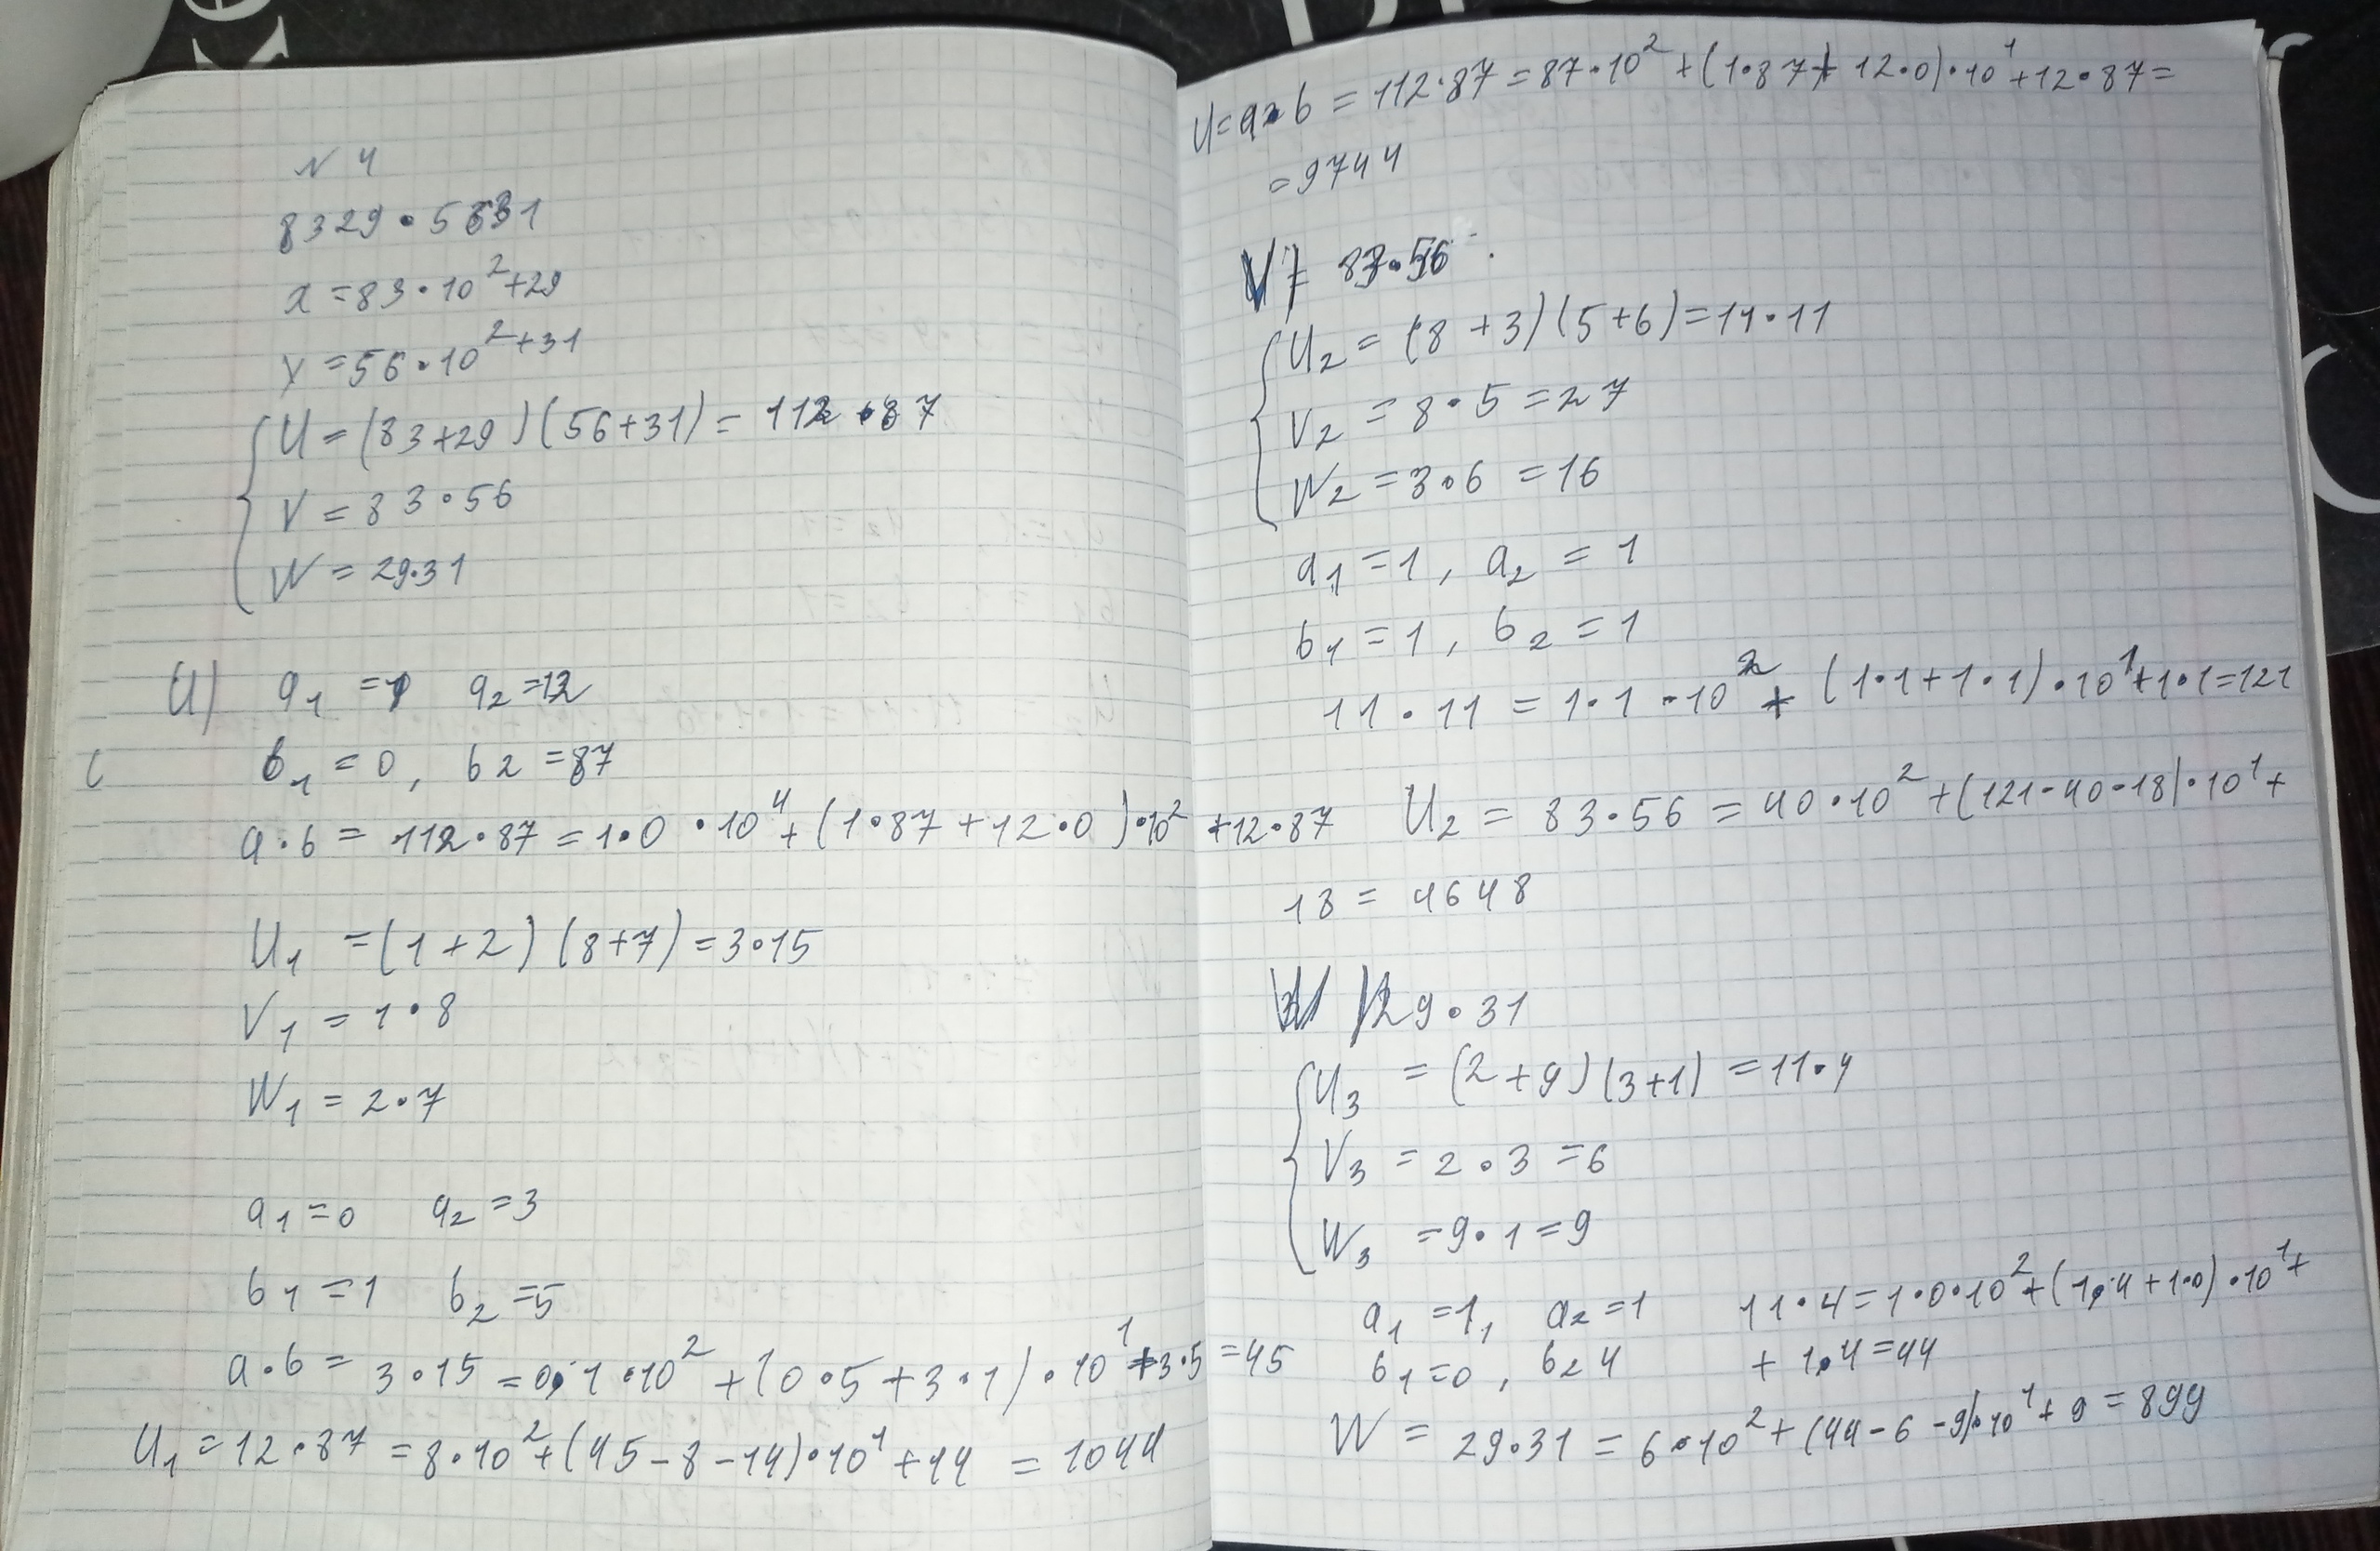 N 4
8329 • 5631
x = 83 • 10² + 29
y = 56 • 10² + 31
U = (83 + 29)(56 + 31) = 112 • 87
V = 83 • 56
W = 29 • 31
U) a₁ = 1 a₂ = 12
b₁ = 0, b₂ = 87
a • b = 112 • 87 = 1 • 0 • 10⁴ + (1 • 87 + 12 • 0) • 10² + 12 • 87
U₁ = (1 + 2)(8 + 7) = 3 • 15
V₁ = 1 • 8
W₁ = 2 • 7
a₁ = 0 a₂ = 3
b₁ = 1 b₂ = 5
a • b = 3 • 15 = 0 • 1 • 10² + (0 • 5 + 3 • 1) • 10¹ + 3 • 5 = 45
U₁ = 12 • 87 = 8 • 10² + (45 - 8 - 14) • 10¹ + 14 = 1044
U = a • b = 112 • 87 = 87 • 10² + (1 • 87 + 12 • 0) • 10¹ + 12 • 87 =
= 9744
V) 83 • 56
U₂ = (8 + 3)(5 + 6) = 11 • 11
V₂ = 8 • 5 = 27
W₂ = 3 • 6 = 16
a₁ = 1, a₂ = 1
b₁ = 1, b₂ = 1
11 • 11 = 1 • 1 • 10² + (1 • 1 + 1 • 1) • 10¹ + 1 • 1 = 121
U₂ = 83 • 56 = 40 • 10² + (121 - 40 - 18) • 10¹ +
18 = 4648
W) 29 • 31
U₃ = (2 + 9)(3 + 1) = 11 • 4
V₃ = 2 • 3 = 6
W₃ = 9 • 1 = 9
a₁ = 1, a₂ = 1 11 • 4 = 1 • 0 • 10² + (1 • 4 + 1 • 0) • 10¹ +
b₁ = 0, b₂ 4 + 1 • 4 = 44
W = 29 • 31 = 6 • 10² + (44 - 6 - 9) • 10¹ + 9 = 899